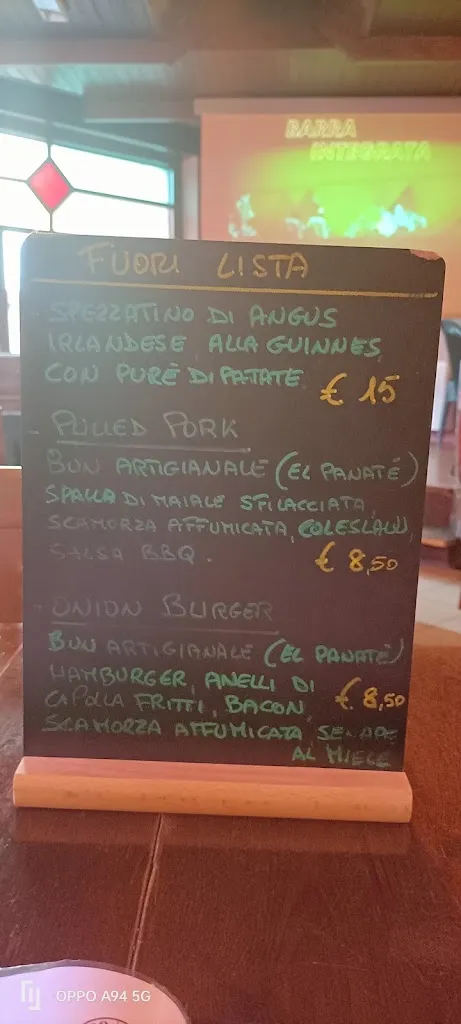 BARRA
INTEGRATA
FUORI LISTA
- SPEZZATINO DI ANGUS
IRLANDESE ALLA GUINNES
CON PURÈ DI PATATE € 15
- PULLED PORK
BUN ARTIGIANALE (EL PANATÉ)
SPALLA DI MAIALE SFILACCIATA,
SCAMORZA AFFUMICATA, COLESLAW,
SALSA BBQ. € 8,50
- ONION BURGER
BUN ARTIGIANALE (EL PANATÉ)
HAMBURGER, ANELLI DI
CIPOLLA FRITTI, BACON, € 8,50
SCAMORZA AFFUMICATA, SENAPE
AL MIELE
OPPO A94 5G